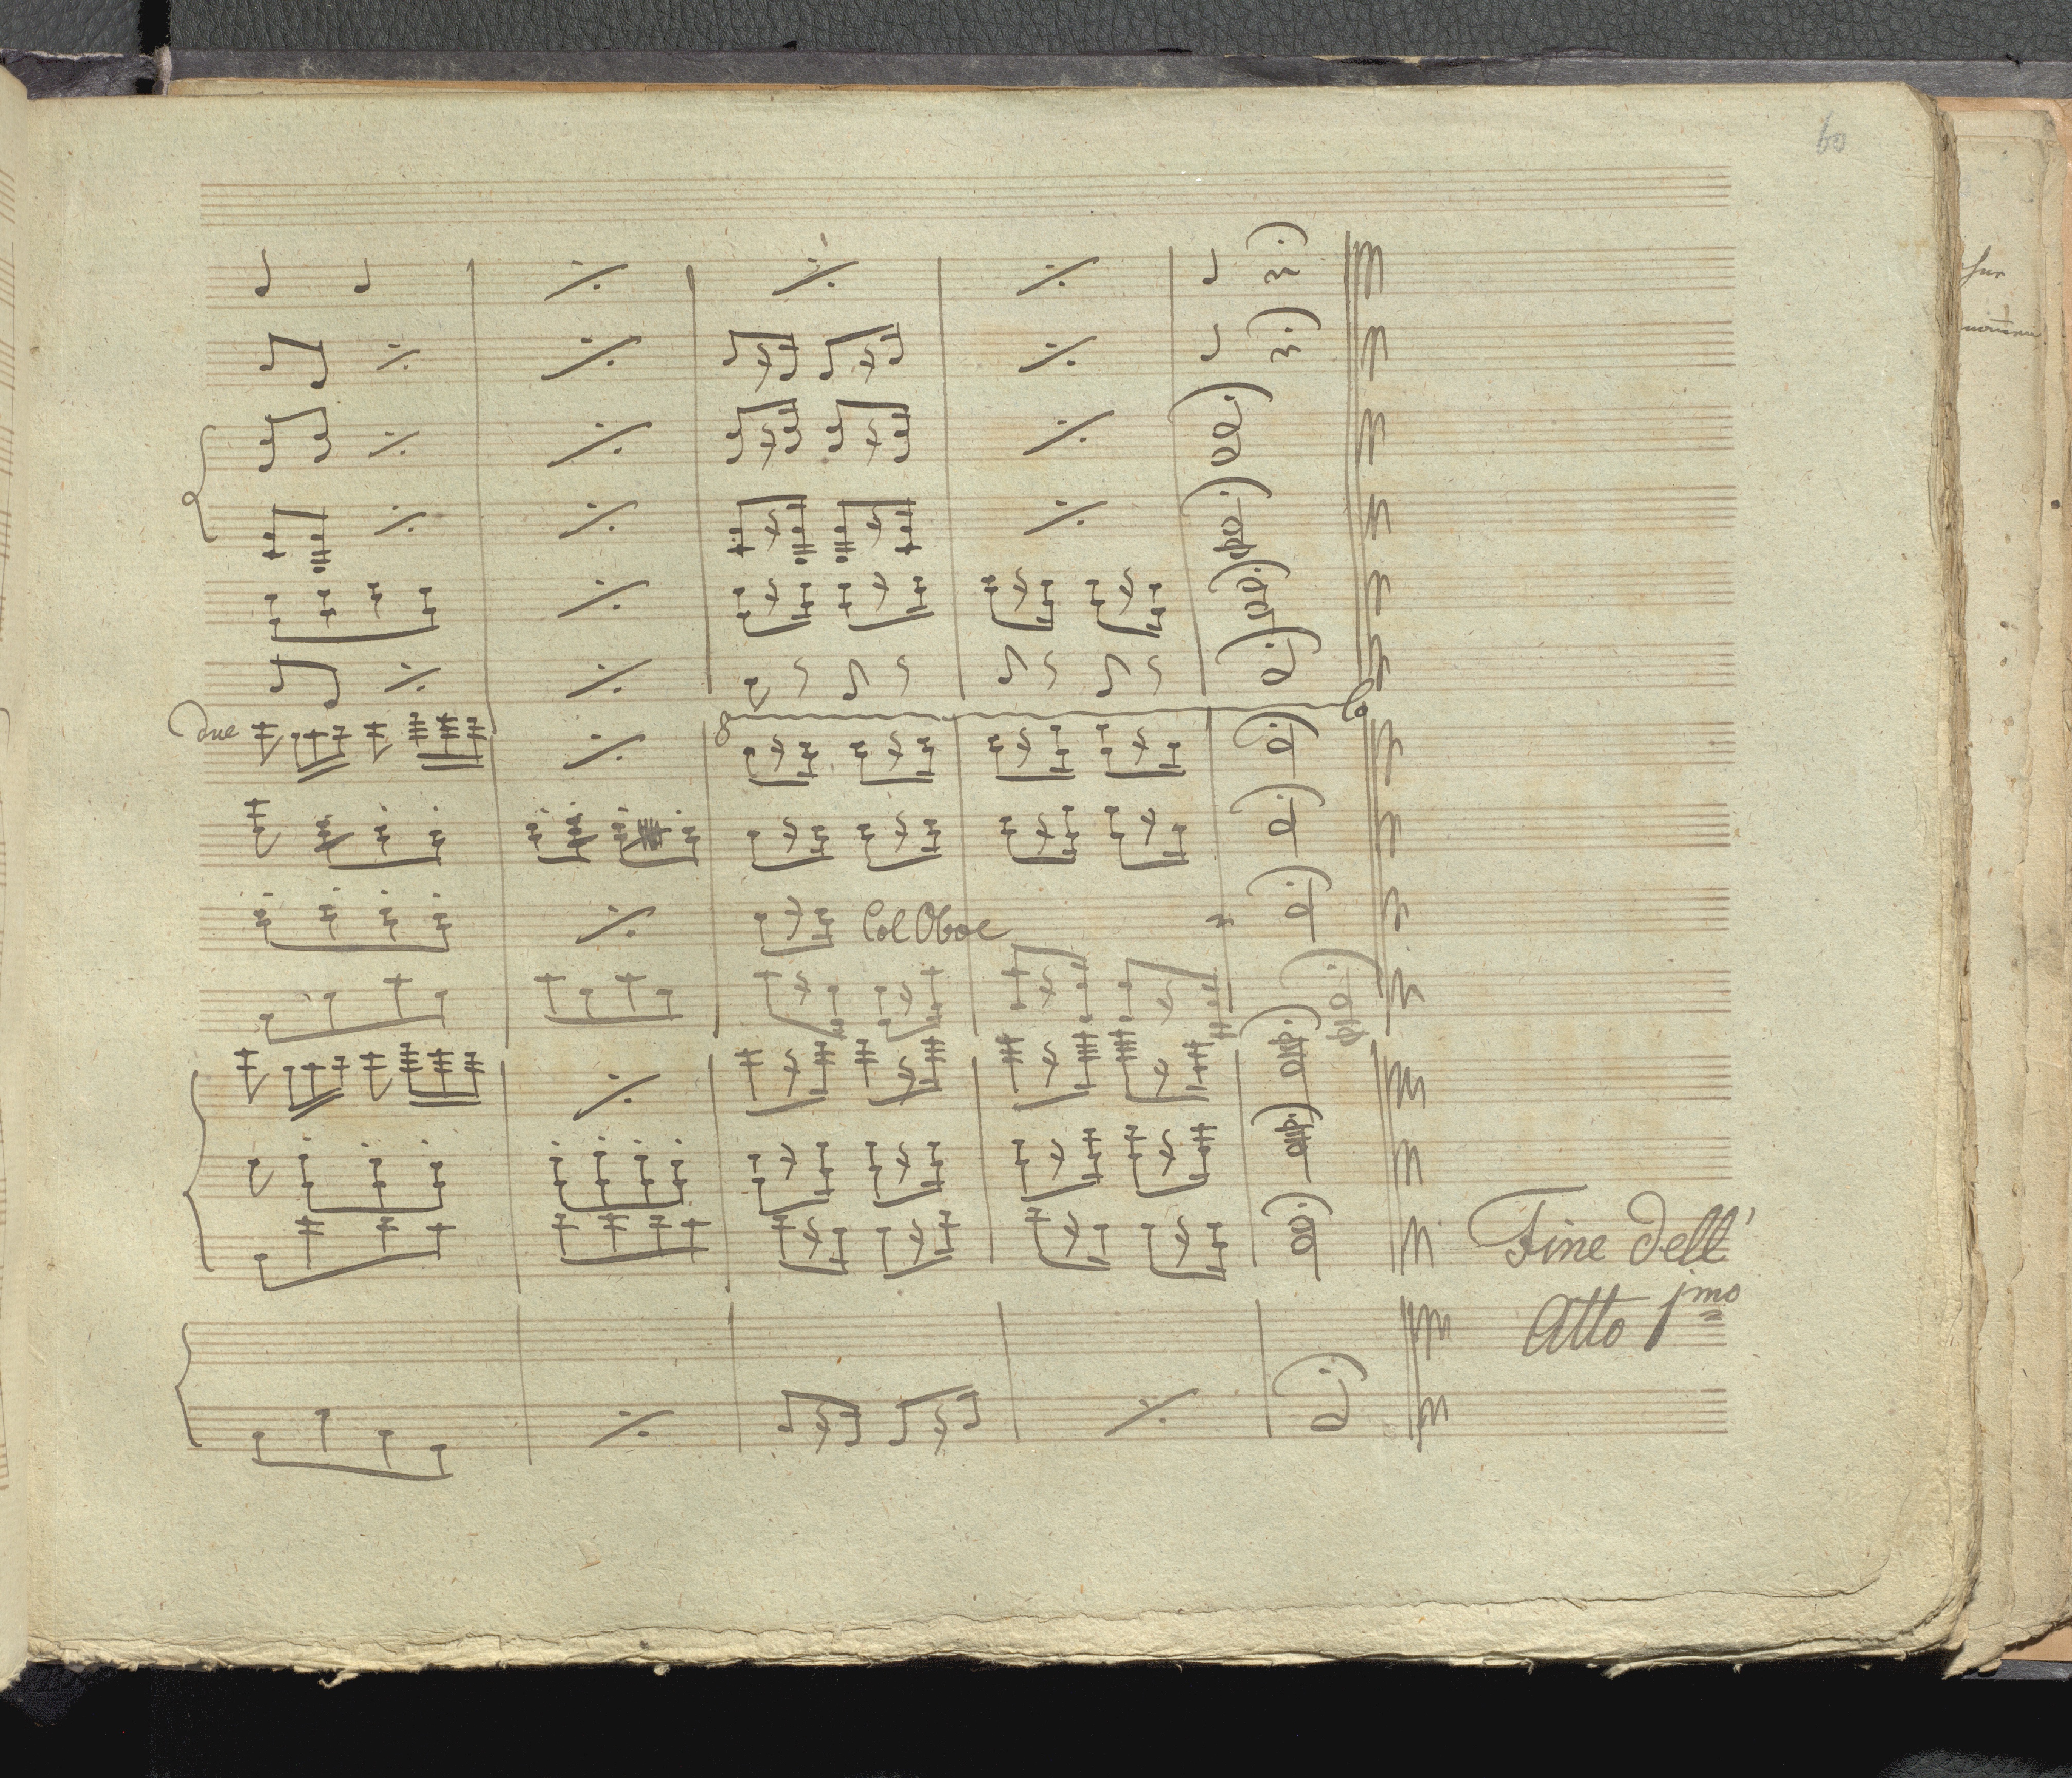 60
due
8
Col Oboe
Fine dell'
Atto 1mo